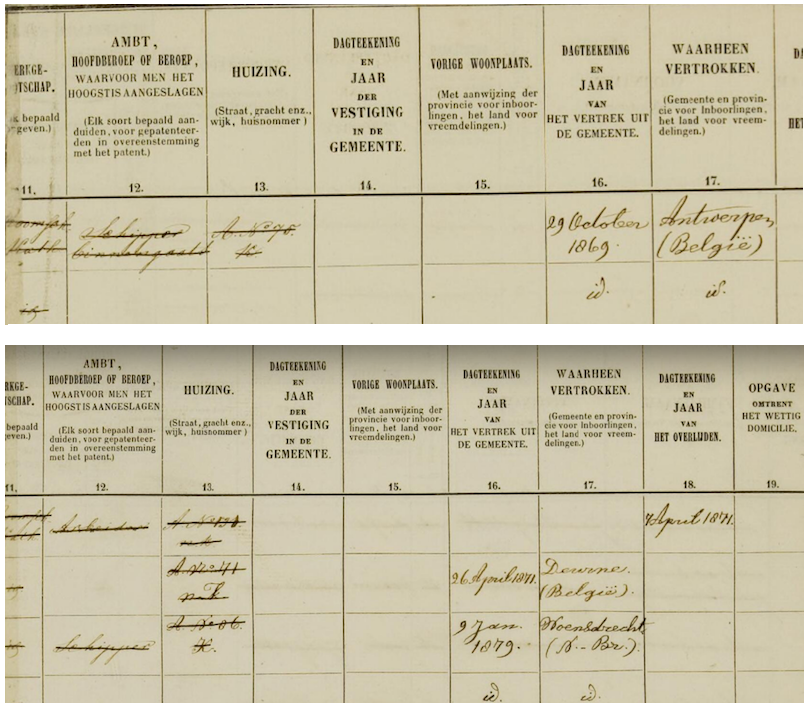 ERKGE-
OTSCHAP.
k bepaald
geven.)
11.
AMBT,
HOOFDBEROEP OF BEROEP,
WAARVOOR MEN HET
HOOGST IS AANGESLAGEN
(Elk soort bepaald aan-
duiden, voor gepatenteer-
den in overeenstemming
met het patent.)
12.
HUIZING.
(Straat, gracht enz.,
wijk, huisnommer)
13.
DAGTEEKENING
EN
JAAR
DER
VESTIGING
IN DE
GEMEENTE.
14.
VORIGE WOONPLAATS.
(Met aanwijzing der
provincie voor inboor-
lingen, het land voor
vreemdelingen.)
15.
DAGTEEKENING
EN
JAAR
VAN
HET VERTREK UIT
DE GEMEENTE.
16.
WAARHEEN
VERTROKKEN.
(Gemeente en provin-
cie voor Inboorlingen,
het land voor vreem-
delingen.)
17.
DA
HET
Schipper
binnenvaart
A. No 98.
K
29 October
1869.
Antwerpen
(België)
id.
id.
id.
RKGE-
TSCHAP.
bepaald
geven.)
11.
AMBT,
HOOFDBEROEP OF BEROEP,
WAARVOOR MEN HET
HOOGST IS AANGESLAGEN
(Elk soort bepaald aan-
duiden, voor gepatenteer-
den in overeenstemming
met het patent.)
12.
HUIZING.
(Straat, gracht enz.,
wijk, huisnommer)
13.
DAGTEEKENING
EN
JAAR
DER
VESTIGING
IN DE
GEMEENTE.
14.
VORIGE WOONPLAATS.
(Met aanwijzing der
provincie voor inboor-
lingen, het land voor
vreemdelingen.)
15.
DAGTEEKENING
EN
JAAR
VAN
HET VERTREK UIT
DE GEMEENTE.
16.
WAARHEEN
VERTROKKEN.
(Gemeente en provin-
cie voor Inboorlingen,
het land voor vreem-
delingen.)
17.
DAGTEEKENING
EN
JAAR
VAN
HET OVERLIJDEN.
18.
OPGAVE
OMTRENT
HET WETTIG
DOMICILIE.
19.
Arbeider
A No 198.
7 April 1871.
A No 41
26 April 1871.
Deurne.
(België).
Schipper
A. No 86.
K.
9 Jan.
1879.
Woensdrecht
(N.-Br.).
id.
id.